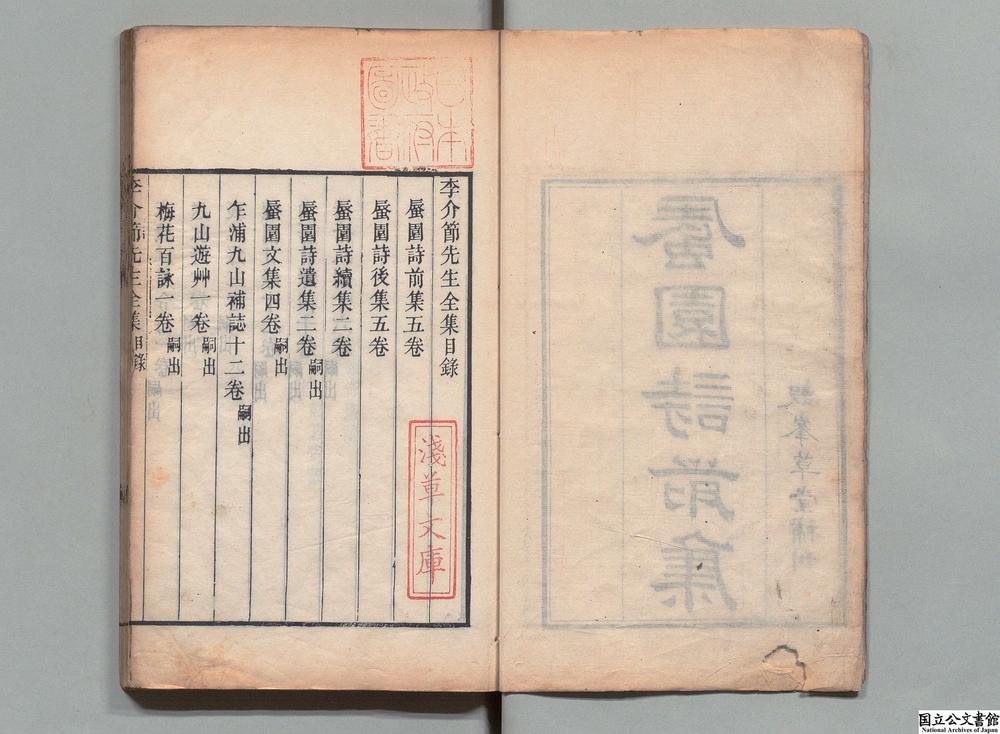 蜃園詩前集
草堂補刊
日本
政府
圖書
李介節先生全集目錄
蜃園詩前集五卷
蜃園詩後集五卷
蜃園詩續集二卷
蜃園詩遺集二卷嗣出
蜃園文集四卷嗣出
乍浦九山補誌十二卷嗣出
九山遊艸一卷嗣出
梅花百詠一卷嗣出
李介節先生全集目錄
淺草文庫
国立公文書館
National Archives of Japan